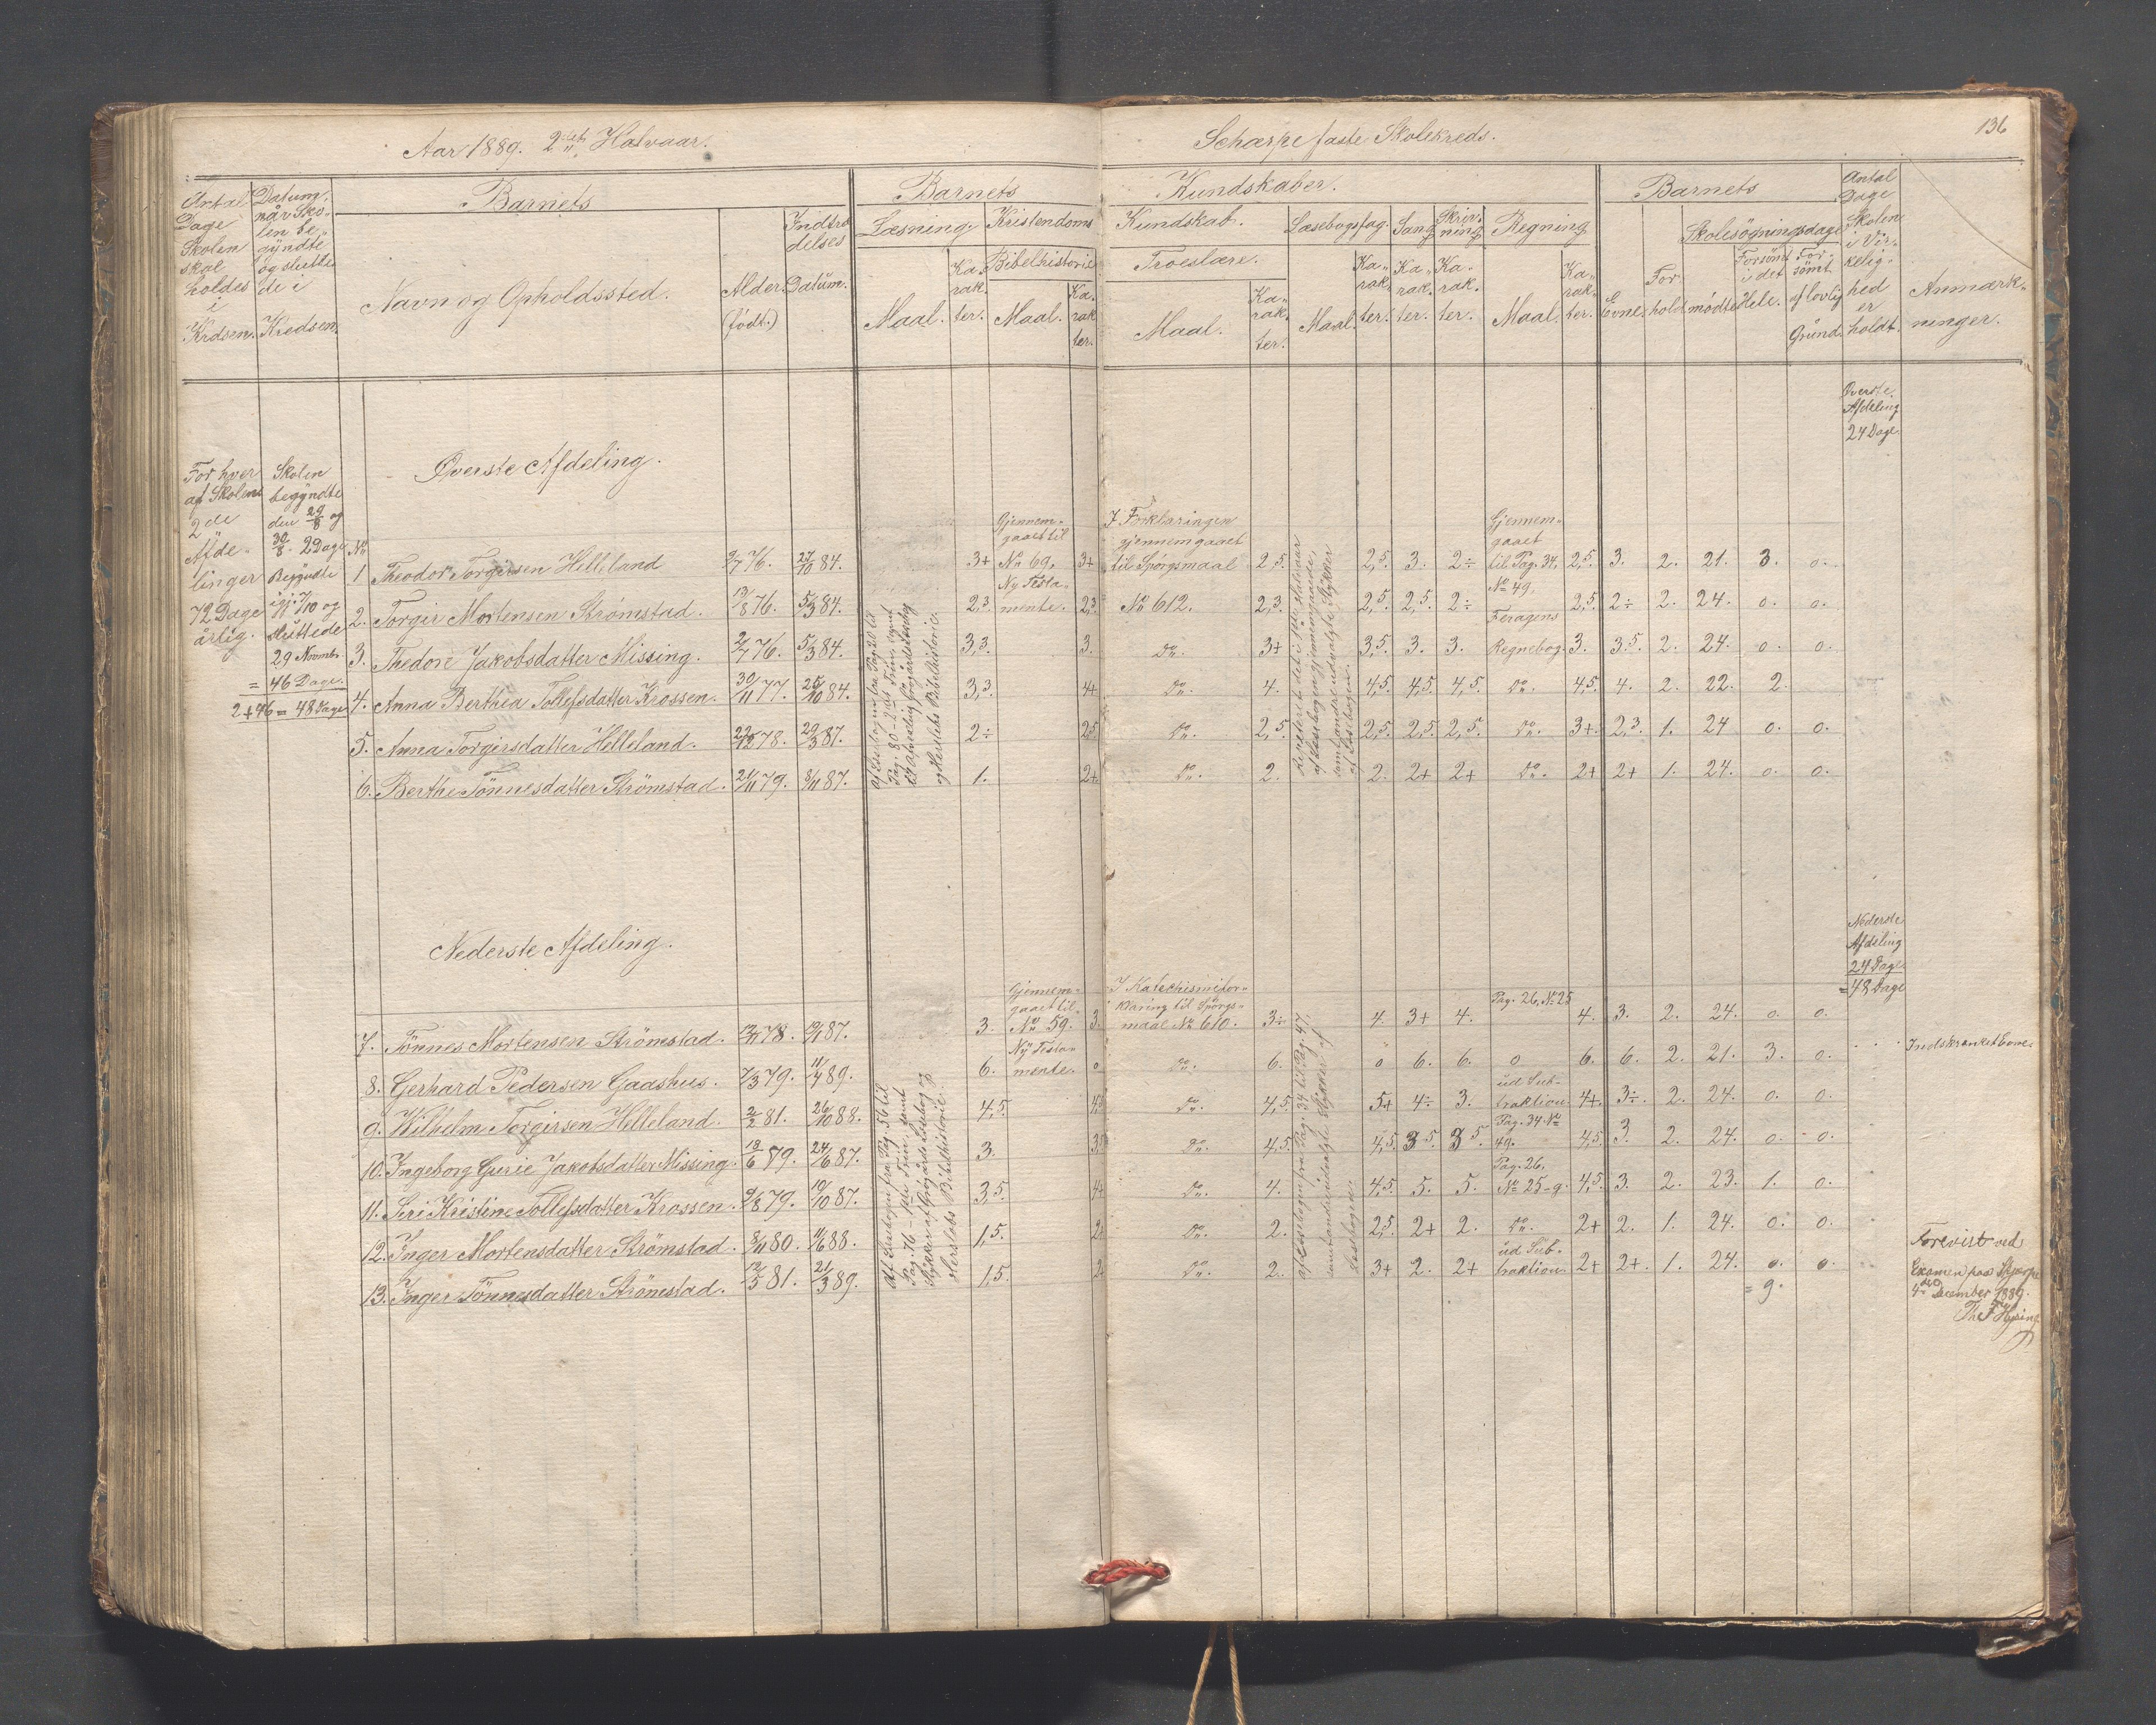 Aar 1889. 2det Halvaar.
Schærpe faste Skolekreds.
136
Antal Dage Skolen skal holdes i Krdsen.
Datum, når Skolen begyndte og sluttede i Kredsen.
Barnets
Navn og Opholdssted.
Alder. (født.)
Indtrædelses Datum.
Barnets
Læsning.
Maal.
Karakter.
Kristendoms
Bibelhistorie
Maal.
Karakter.
Kundskaber.
Kundskab.
Troeslære.
Maal.
Karakter.
Læsebogsfag.
Maal.
Karakter.
Sang
Karakter.
Skrivning
Karakter.
Regning
Maal.
Karakter.
Barnets
Evne.
Forhold.
Skolesøgningsdage
mødte
Forsömt i det Hele.
Forsömt af lovlig Grund.
Antal Dage Skolen i Virkelighed er holdt.
Anmærkninger.
Øverste Afdeling 24 Dage.
Øverste Afdeling.
For hver af Skolens 2de Afdelinger 72 Dage årlig.
Skolen begyndte den 29/8 og 30/8. 2 Dage
Begyndte igj. 7/10 og sluttede 29 Novmbr.
= 46 Dage.
2+46 = 48 Dage
No
Gjennemgaaet til No 69, Ny Testamente.
I Forklaringen gjennemgaaet til Spörgsmaal No 612.
Gjennemgaaet til Pag. 34, No 49, Feragens Regnebog.
1 Theodor Torgirsen Helleland 9/7 76. 27/10 84. 3+ 3+ 2,5. 2,5. 3. 2÷ 2,5. 3. 2. 21. 3. 0.
2. Torgir Mortensen Strömstad. 13/8 76. 5/3 84. 2,3. 2,3. 2,3. 2,5. 2,5. 2÷ 2,5. 2÷ 2. 24. 0. 0.
3. Thedore Jakobsdatter Missing. 2/7 76. 5/3 84. 3,3. 3. Do. 3+ 3,5. 3. 3. 3. 3.5. 2. 24. 0. 0.
4. Anna Berthea Tollefsdatter Krossen. 30/11 77. 25/10 84. 3,3. 4+ Do. 4. 4,5. 4,5. 4,5. Do. 4,5. 4. 2. 22. 2.
5. Anna Torgirsdatter Helleland. 22/12 78. 29/3 87. 2÷ 2,5. Do. 2,5. 2,5. 2,5. 2,5. Do. 3+. 2,3. 1. 24 0. 0.
6. Berthe Tönnesdatter Strömstad. 21/11 79. 8/11 87. 1. 2+ Do. 2. 2. 2+ 2+ Do. 2+ 2+ 1. 24. 0. 0.
Nederste Afdeling.
Nederste Afdeling 24 Dage
= 48 Dage
Gjennemgaaet til No 59. Ny Testamente.
I Katechismiforklaring til Spörgsmaal No 610.
7. Tönnes Mortensen Strömstad. 12/11 78. 19/1 87. 3. 3. 3÷ 4. 3+ 4. Pag. 26, No 25 4. 3. 2. 24. 0. 0.
8. Gerhard Pedersen Gaashus. 7/3 79. 11/4 89. 6. 0 Do. 6. 0 6. 6. 0 6. 6. 2. 21. 3. 0. Indskrænket Evne.
9. Wilhelm Torgirsen Helleland. 2/2 81. 26/10 88. 4,5. 4,5 Do. 4,5. 5+ 4÷ 3. ud Subtraktion 4+. 3÷. 2. 24. 0. 0.
10. Ingeborg Gurie Jakobsdatter Missing. 18/6 79. 24/6 87. 3. 3,5 Do. 4,5. 4,5. 3.5. 3.5. Pag. 34 No 49. 4,5. 3. 2. 24. 0. 0.
11. Siri Kristine Tollefsdatter Krossen. 9/8 79. 19/10 87. 3,5. 4+ Do. 4. 4,5. 5. 5. Pag. 26, No 25-9. 4,5. 3. 2. 23. 1. 0.
12. Inger Mortensdatter Strömstad. 8/11 80. 11/6 88. 1,5. 2. Do. 2. 2,5. 2+ 2. Do. 2+ 2. 1. 24. 0. 0.
13. Inger Tönnesdatter Strömstad. 12/5 81. 21/3 89. 1,5. 2. Do. 2. 3+ 2. 2+ ud Subtraktion 2+ 2+. 1. 24. 0. 0.
= 9.
Forevist ved Examen paa Skjærpe 4de December 1889.
Th. F. Hysing